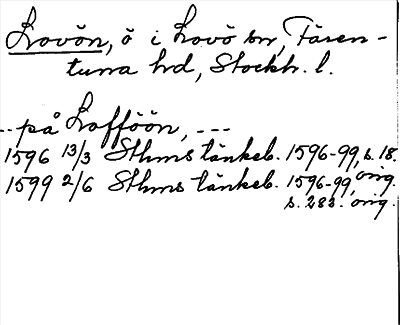 Lovön, ö i Lovö sn, Fären-
tuna hd, Stockh. l.
--på Lafföön, ---
1596 13/3 Sthms tänkeb. 1596-99, s. 18. orig.
1599 2/6 Sthms tänkeb. 1596-99,
s. 283. orig.